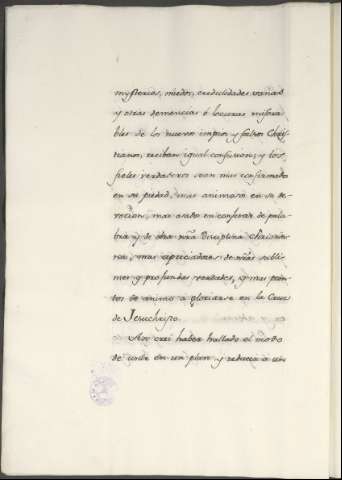 mysterios, miedos, credulidades vanas
y otras demencias ó locuras misera-
bles de los nuevos impios y falsos Chris-
tianos, reciban igual confusion; y los
fieles verdaderos sean mas confirmados
en su piedad, mas animosos en su de-
vocion, mas osados en confesar de pala-
bra y de obra nra Disciplina Christia-
na, mas apreciadores de nras subli-
mes y profundas verdades, y mas pron-
tos de animo á gloriarse en la Cruz
de Jesuchristo.
Aun crei haber hallado el modo
de unir en un plan y reducir á un